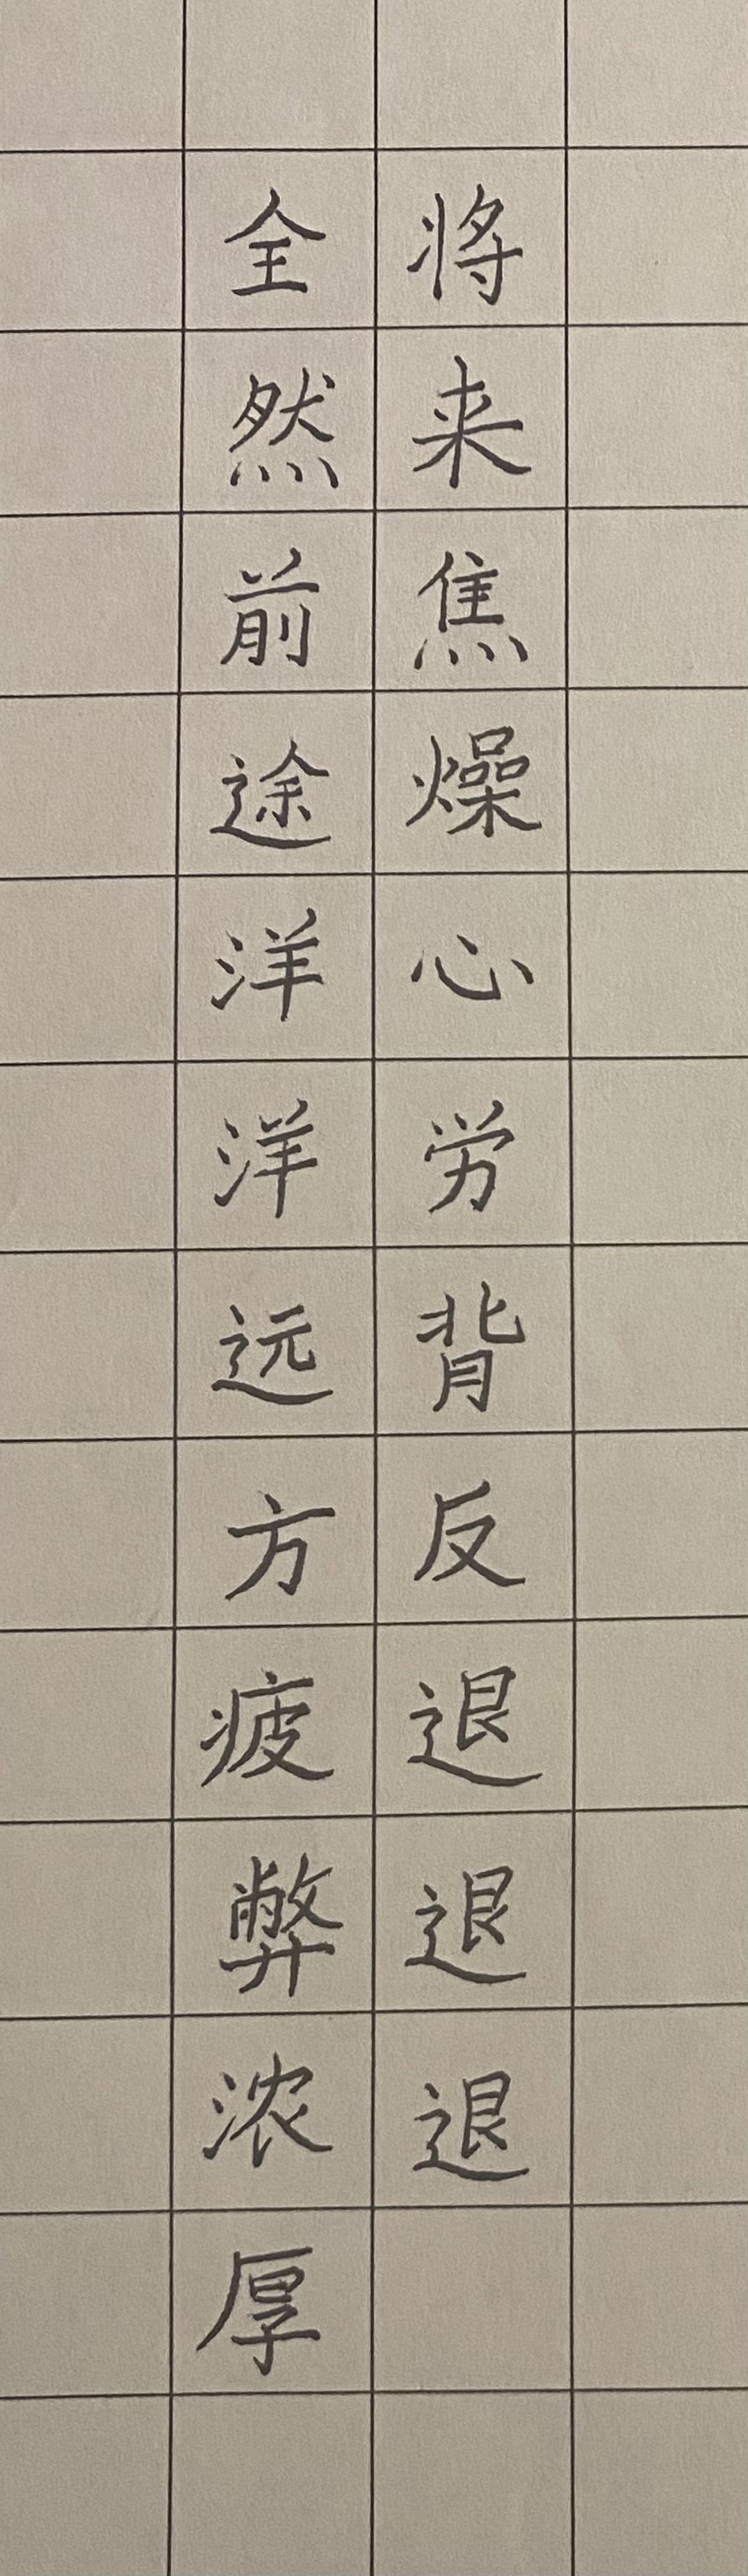 将来焦燥心労背反退退退
全然前途洋洋远方疲弊浓厚